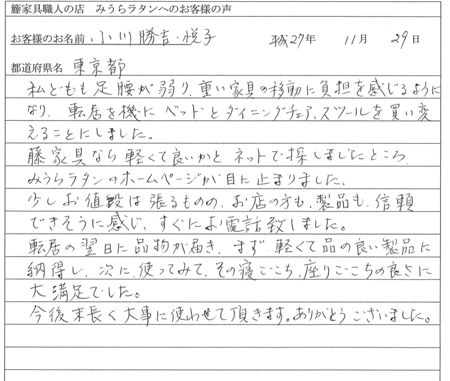 籐家具職人の店　みうらラタンへのお客様の声
お客様のお名前　小川勝吉・悦子　平成27年　11月　29日
都道府県名　東京都
私どもも足腰が弱り、重い家具の移動に負担を感じるように
なり、転居を機にベッドとダイニングチェア、スツールを買い変
えることにしました。
藤家具なら軽くて良いかとネットで探しましたところ、
みうらラタンのホームページが目に止まりました。
少しお値段は張るものの、お店の方も、製品も、信頼
できそうに感じ、すぐにお電話致しました。
転居の翌日に品物が届き、まず、軽くて品の良い製品に
納得し、次に、使ってみて、その寝ごこち、座りごこちの良さに
大満足でした。
今後末長く大事に使わせて頂きます。ありがとうございました。